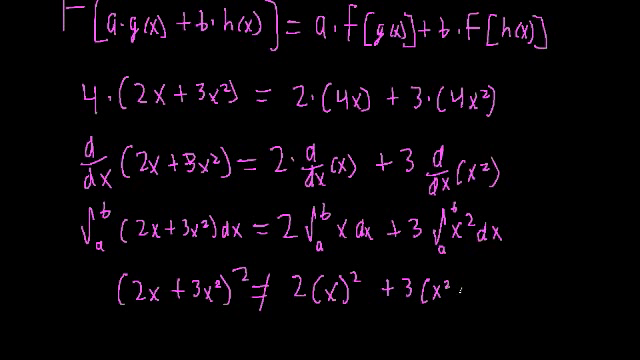 F[a·g(x) + b·h(x)] = a·f[g(x)] + b·F[h(x)]
4·(2x + 3x²) = 2·(4x) + 3·(4x²)
d/dx (2x + 3x²) = 2·d/dx (x) + 3 d/dx (x²)
∫ₐᵇ (2x + 3x²) dx = 2 ∫ₐᵇ x dx + 3 ∫ₐᵇ x² dx
(2x + 3x²)² ≠ 2(x)² + 3(x²